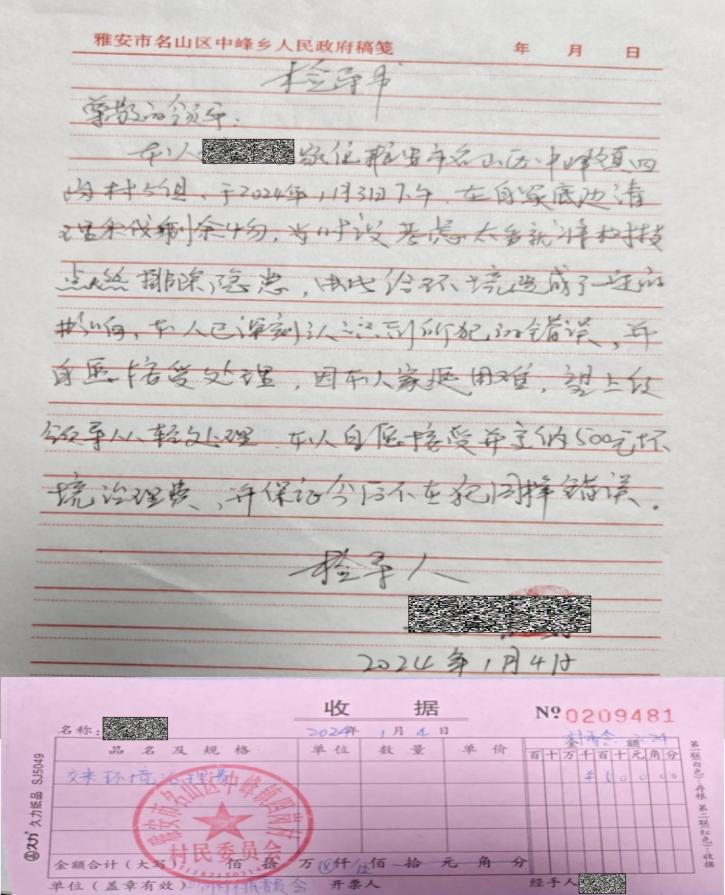 雅安市名山区中峰乡人民政府稿笺 年 月 日
检导书
尊敬的领导:
本人 家住雅安市名山区中峰镇四
岗村5组,于2024年1月3日下午,在自家底边清
理采伐剩余物,当时没考虑太多就将树枝
点燃排除隐患,由此给环境造成了一定的
影响,本人已深刻认识到所犯的错误,并
自愿接受处理,因本人家庭困难,望上级
领导从轻处理,本人自愿接受并主纳500元环
境治理费,并保证今后不在犯同样错误。
检导人
2024年1月4日
收据
№0209481
名称:
2024年1月4日
品名及规格 单位 数量 单价 金额
百十万千百十元角分
交来环境治理费 ¥50000
雅安市名山区中峰镇四岗村
村民委员会
金额合计(大写) 佰拾万仟伍佰拾元角分
单位(盖章有效) 开票人 经手人
久力纸品 SJ5049
第一联(白色):存根 第二联(红色):收据